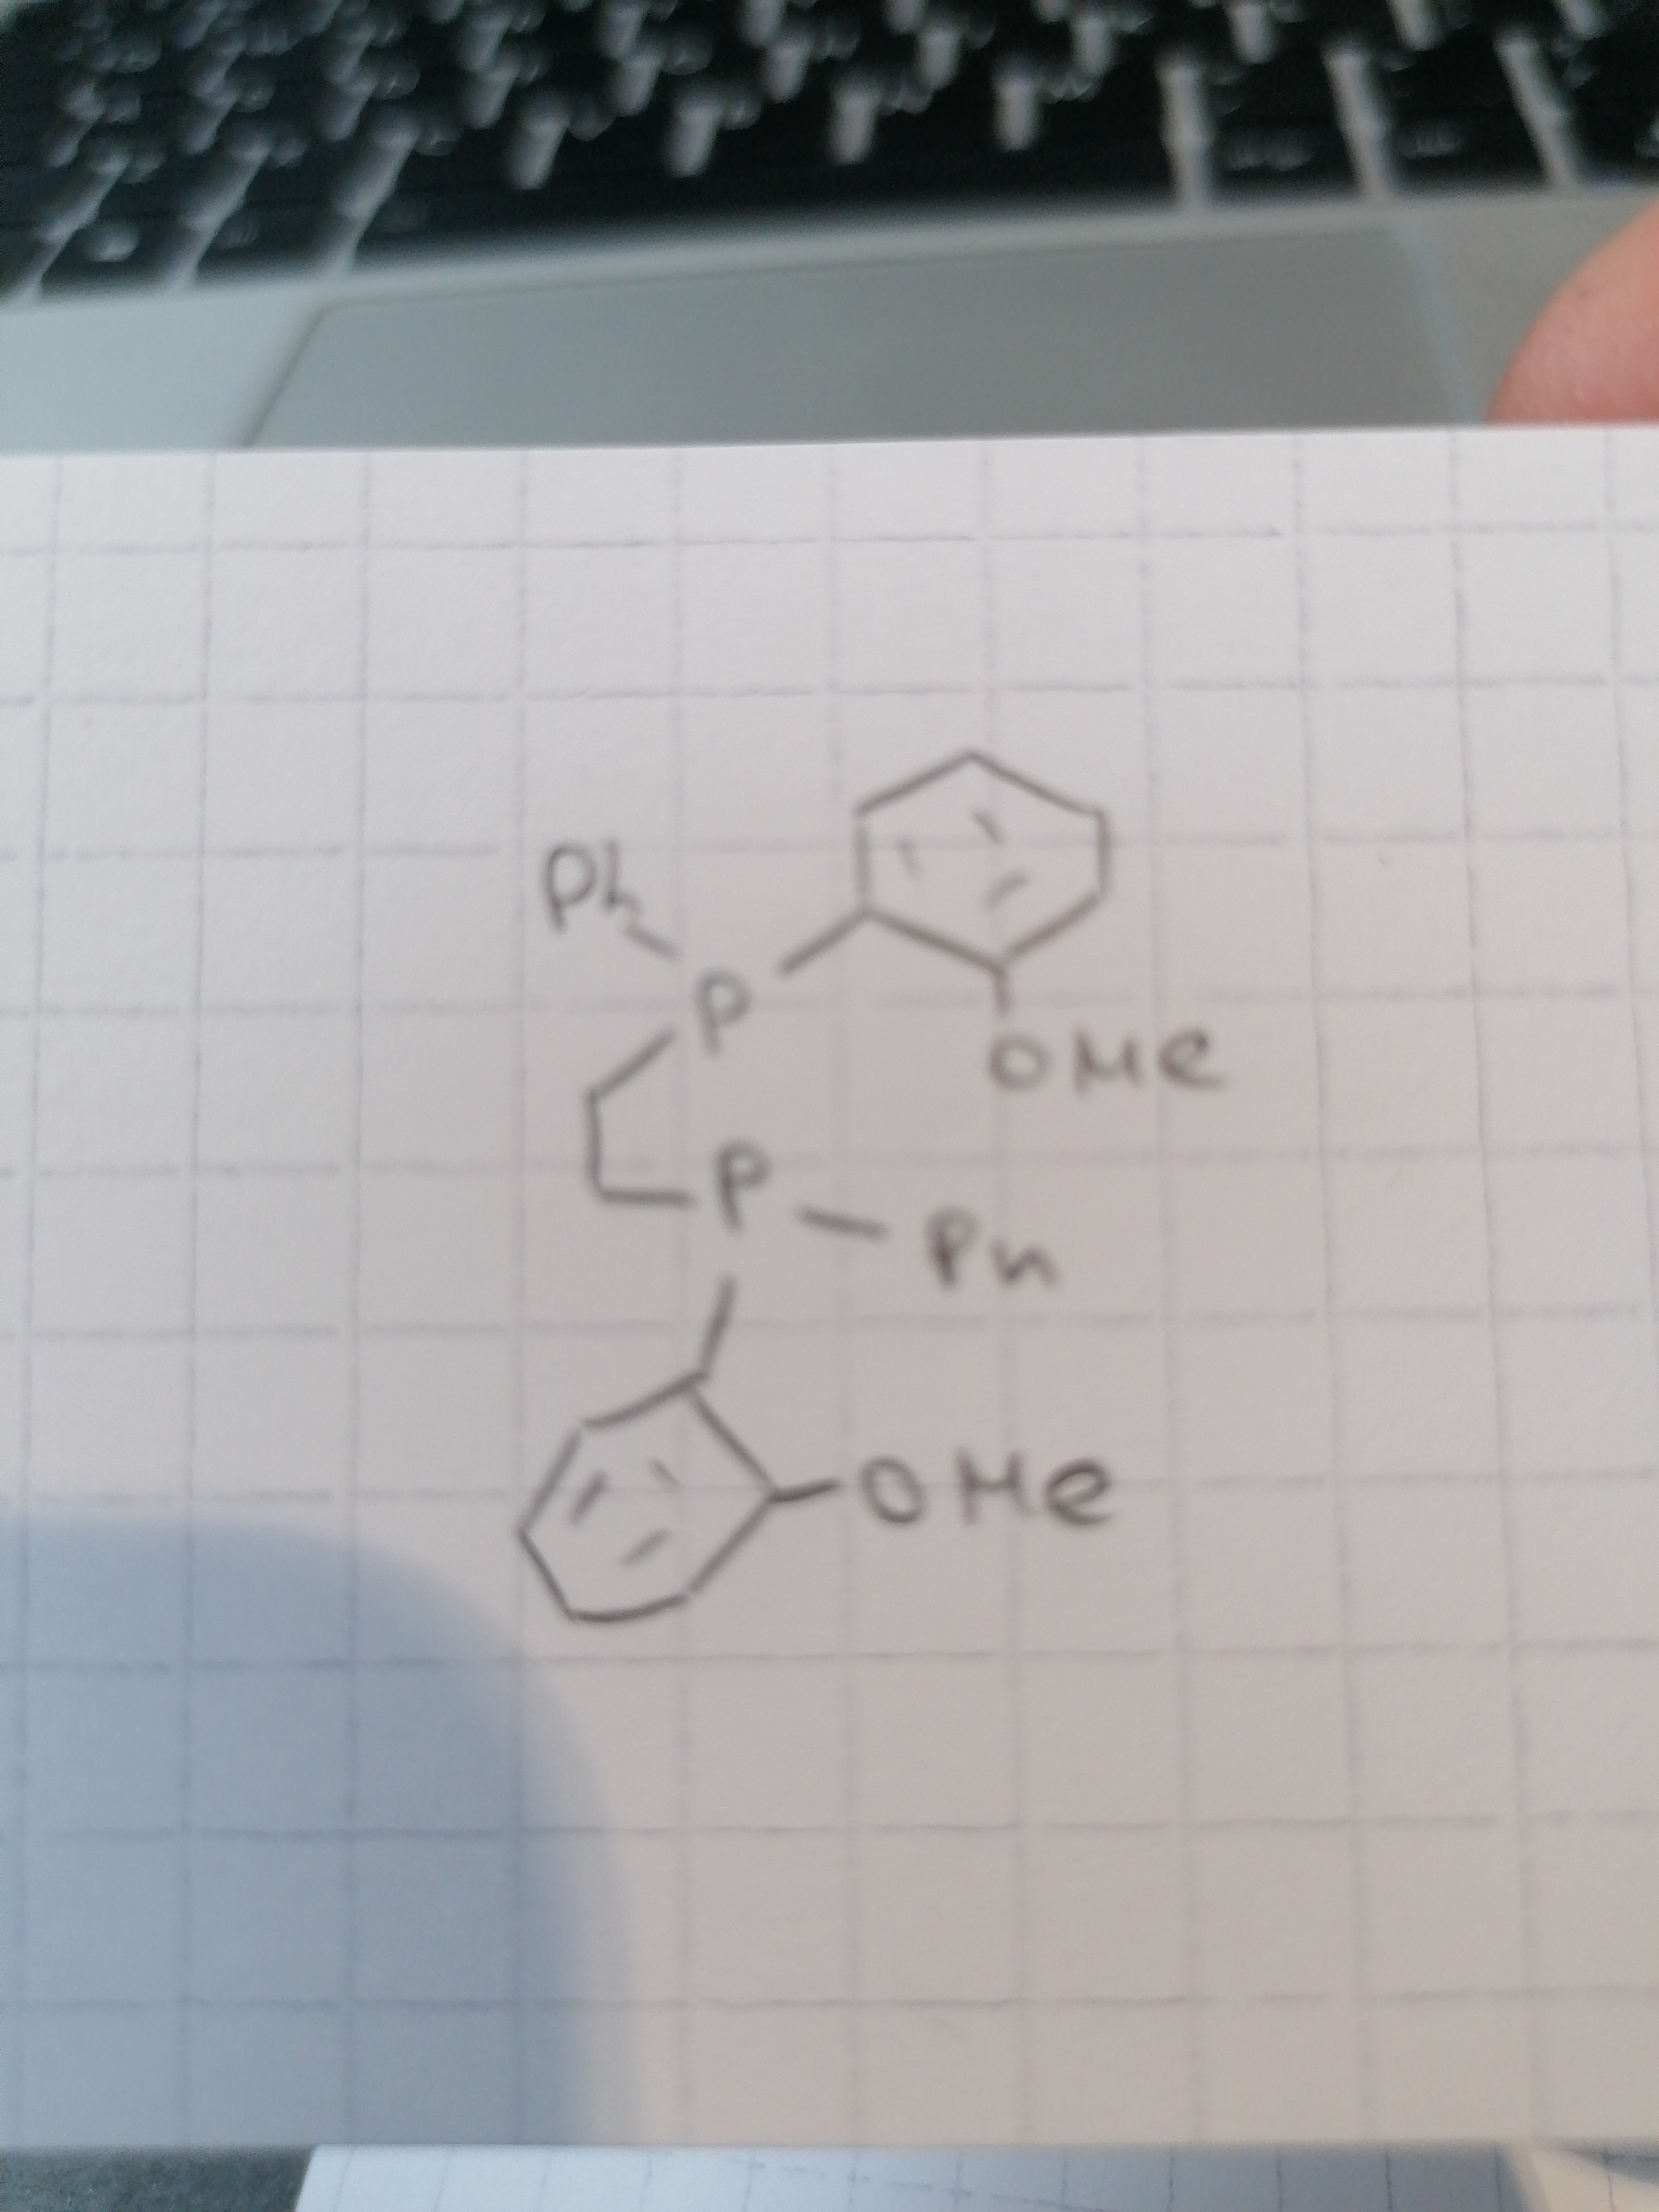 Ph
P
OMe
P
Ph
OMe